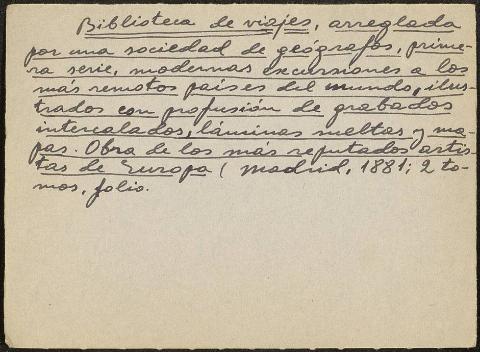 Biblioteca de viajes, arreglada
por una sociedad de geógrafos, prime-
ra serie, modernas excursiones a los
más remotos países del mundo, ilus-
trados con profusión de grabados
intercalados, láminas sueltas y ma-
pas. Obra de los más reputados artis-
tas de Europa (Madrid, 1881; 2 to-
mos, folio.